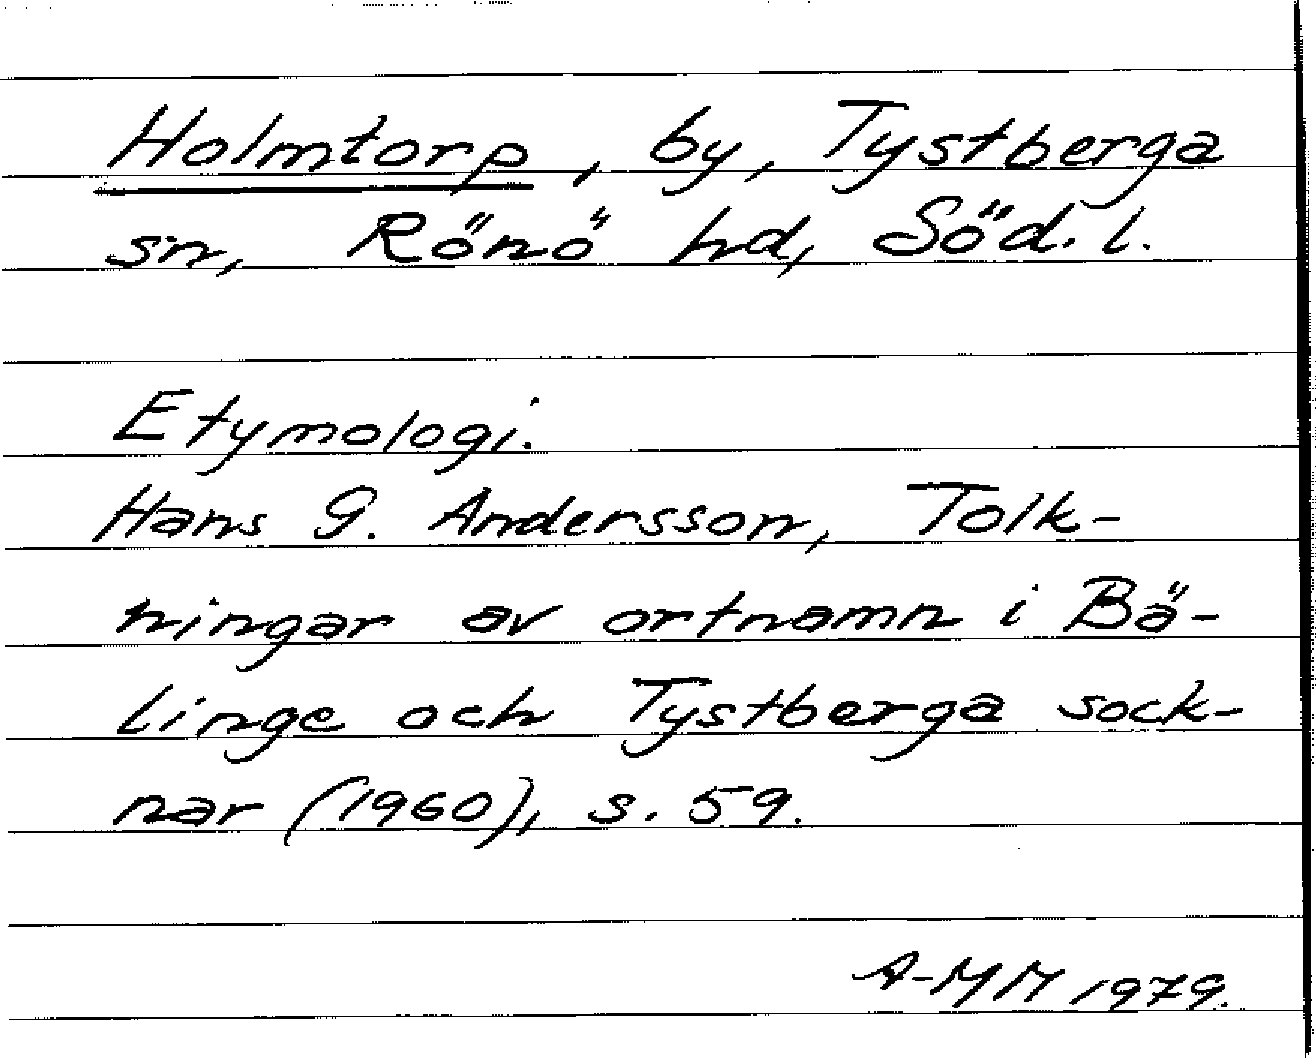 Holmtorp, by, Tystberga
sn, Rönö hd, Söd. l.
Etymologi.
Hans G. Andersson, Tolk-
ningar av ortnamn i Bä-
linge och Tystberga sock-
nar (1960), s. 59.
A-MM 1979.